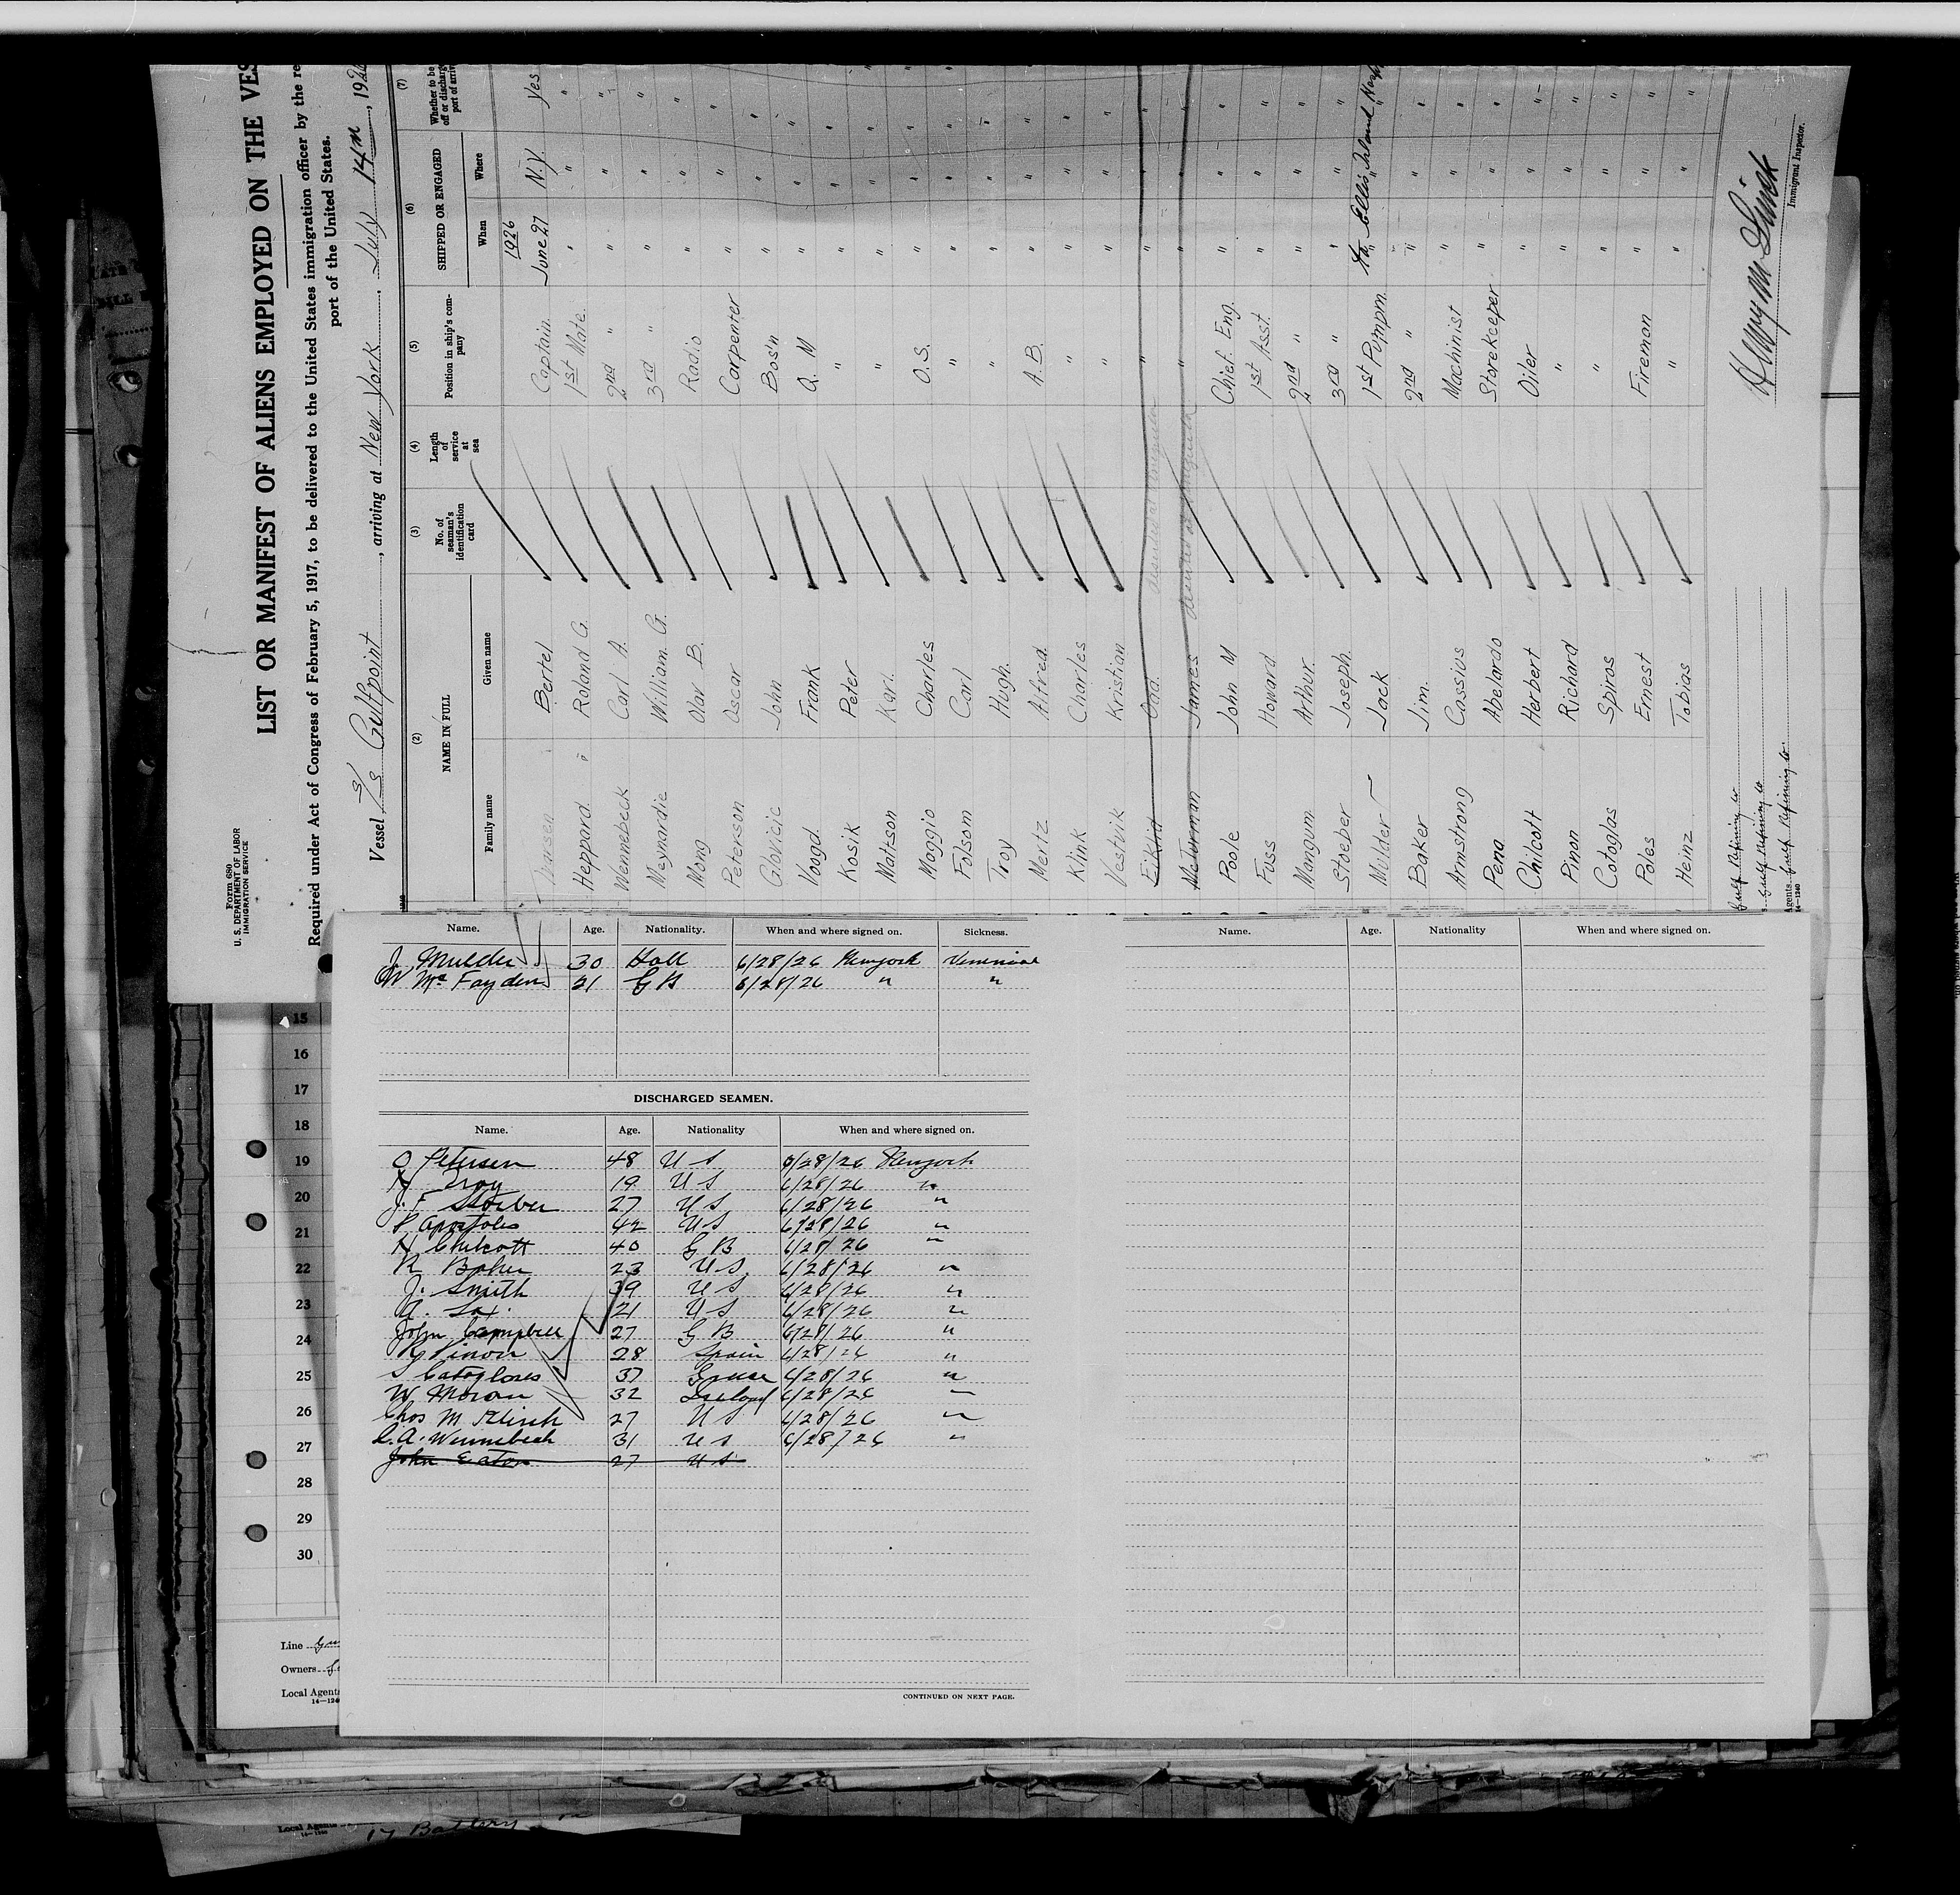 Form 680
U. S. DEPARTMENT OF LABOR
IMMIGRATION SERVICE
LIST OR MANIFEST OF ALIENS EMPLOYED ON THE VES
Required under Act of Congress of February 5, 1917, to be delivered to the United States immigration officer by the re
port of the United States.
Vessel S/S Gulfpoint, arriving at New York, July 14th, 192
(2) (3) (4) (5) (6) (7)
NAME IN FULL No. of seaman's identification card Length of service at sea Position in ship's company SHIPPED OR ENGAGED Whether to be off or discharg port of arriv
Family name Given name When Where
1926
Bertel Captain June 27 N.Y. Yes
Heppard Roland G. 1st Mate " " "
Wennebeck Carl A. 2nd " " " "
Meynardie William G. 3rd " " " "
Wong Olav B. Radio " " "
Peterson Oscar Carpenter " " "
Glovicic John Bos'n " " "
Voogd Frank Q. M " " "
Kosik Peter " " " "
Mattson Karl " " " "
Maggio Charles O.S. " " "
Folsom Carl " " " "
Troy Hugh " " " "
Mertz Alfred A.B. " " "
Klink Charles " " " "
Vestvik Kristian " " " "
Eiklid Odd " " " "
James " " " "
Poole John M Chief Eng. " " "
Fuss Howard 1st Asst. " " "
Mangum Arthur 2nd " " " "
Stoeber Joseph 3rd " " " "
Mulder Jack 1st Pumpm. to Ellis Island Hosp
Baker Jim. 2nd " " " "
Armstrong Cassius Machinist " " "
Pena Abelardo Storekeeper " " "
Chilcott Herbert Oiler " " "
Pinon Richard " " " "
Cotoglas Spiros " " " "
Poles Ernest Fireman " " "
Heinz Tobias " " " "
Gulf Refining Co
Gulf Refining Co
Agents Gulf Refining Co
14—1240
Immigrant Inspector.
Name. Age. Nationality. When and where signed on. Sickness.
J Mulder 30 Holl 6/28/26 Newyork
W McFayden 21 G B 6/28/26 " "
DISCHARGED SEAMEN.
Name. Age. Nationality When and where signed on.
O Petersen 48 U S 6/28/26 Newyork
H Troy 19 U S 6/28/26 "
J. F Stoeber 27 U S 6/28/26 "
P Apostoles 42 U S 6/28/26 "
H Chilcott 40 G B 6/28/26 "
R Baker 23 U S 6/28/26 "
J. Smith 39 U S 6/28/26 "
21 U S 6/28/26 "
John Campbell 27 G B 6/28/26 "
R Pinon 28 Spain 6/28/26 "
S Catoglous 37 Greece 6/28/26 "
W Moran 32 6/28/26 "
Chas M Klink 27 U S 6/28/26 "
C. A. Wennebeck 31 U S 6/28/26 "
John Eaton 27 U S
CONTINUED ON NEXT PAGE.
Name. Age. Nationality When and where signed on.
15
16
17
18
19
20
21
22
23
24
25
26
27
28
29
30
Line
Owners
Local Agents
14—1240
Local Agents
17 Battery